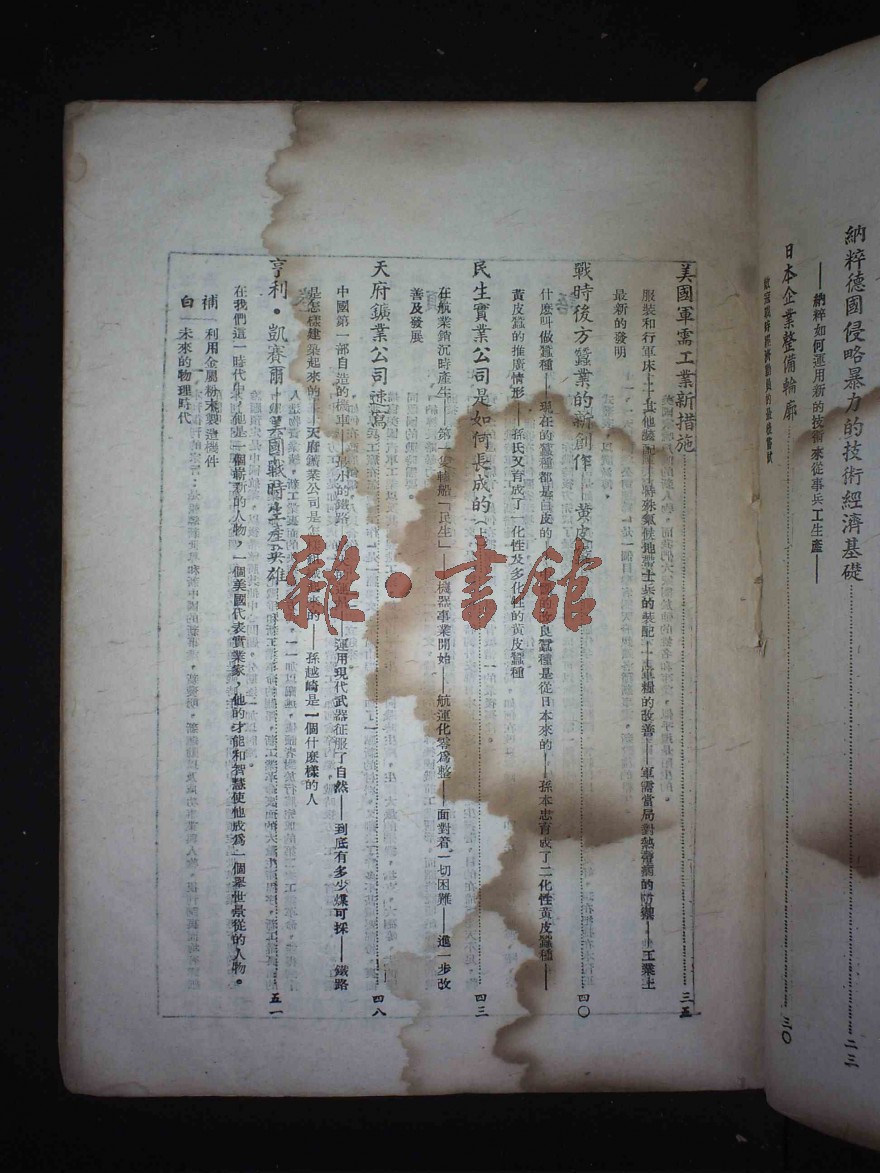 納粹德國侵略暴力的技術經濟基礎……二三
——納粹如何運用新的技術來從事兵工生產——
日本企業整備輪廓……三〇
美國軍需工業新措施……三五
服裝和行軍床——其他裝配——特殊氣候地帶士兵的裝配——軍糧的改善——軍需當局對熱帶病的防禦——工業上
最新的發明
戰時後方蠶業的新創作——黃皮……四〇
什麼叫做蠶種——現在的蠶種都是白皮的——良蠶種是從日本來的——孫本忠育成了二化性黃皮蠶種——
黃皮蠶的推廣情形——孫氏又育成了一化性及多化性的黃皮蠶種
民生實業公司是如何長成的(上……四三
在航業銷沉時產生——第一隻輪船「民生」——機器事業開始——航運化零為整——面對着一切困難——進一步改
善及發展
天府鑛業公司速寫……四八
中國第一部自造的機車——最小的鐵路——運用現代武器征服了自然——到底有多少煤可採——鐵路
是怎樣建築起來的——天府鑛業公司是怎樣組成的——孫越崎是一個什麼樣的人
亨利・凱賽爾——美國戰時生產英雄……五一
在我們這一時代中,他是一個嶄新的人物,一個美國代表實業家,他的才能和智慧使他成為一個舉世景從的人物。
補 利用金屬粉末製造機件
白 未來的物理時代
雜・書館